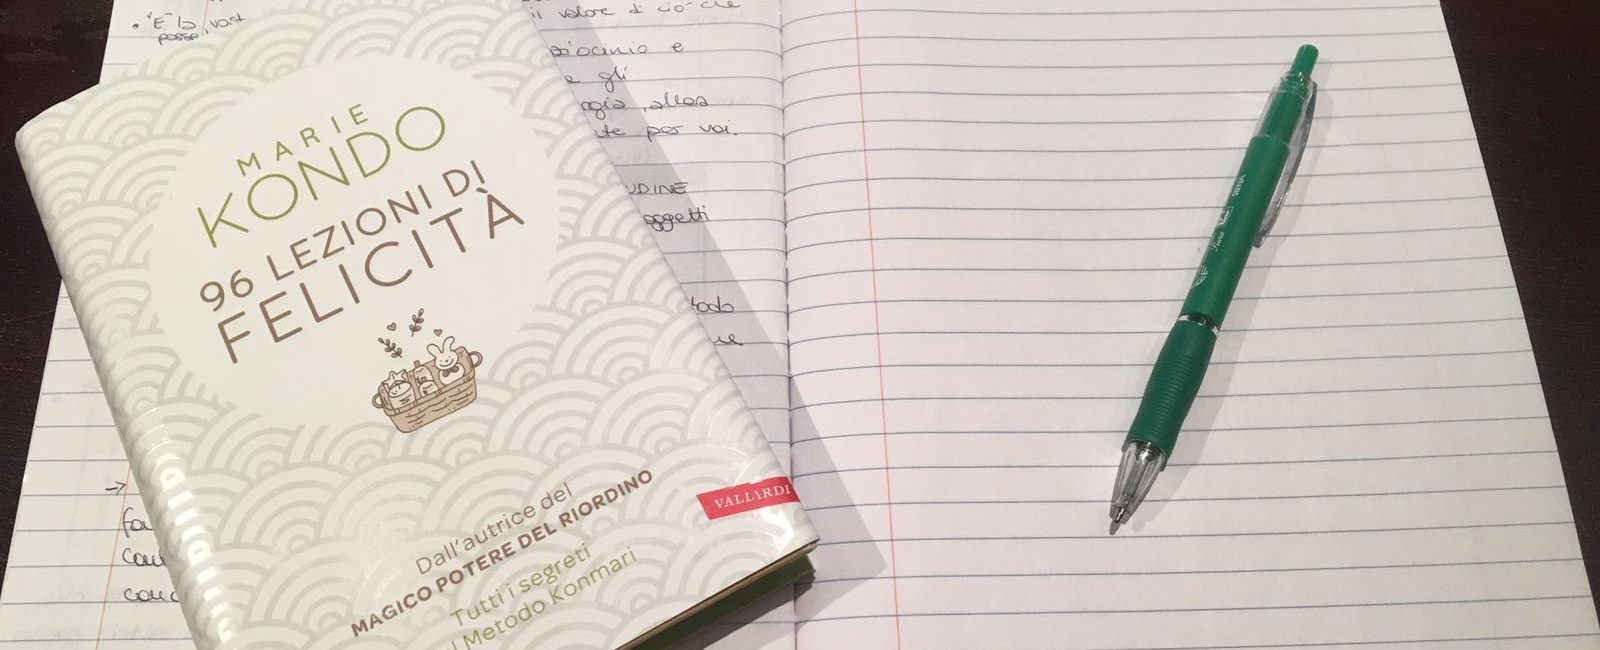 • "È la vost
posse
il valore di ciò che
ziocinio e
e gli
rgia, allora
te per voi.
UDINE
oggetti
todo
ue
MARIE
KONDO
96 LEZIONI DI
FELICITÀ
Dall'autrice del
MAGICO POTERE DEL RIORDINO
Tutti i segreti
l Metodo Konmari
VALLARDI
→